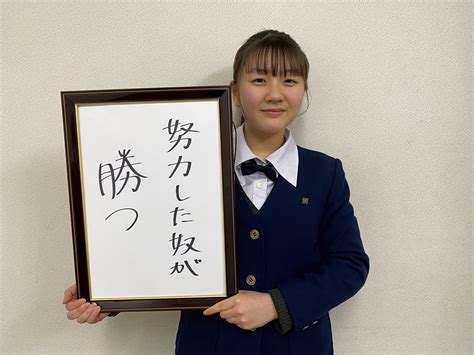 努力した奴が
勝つ